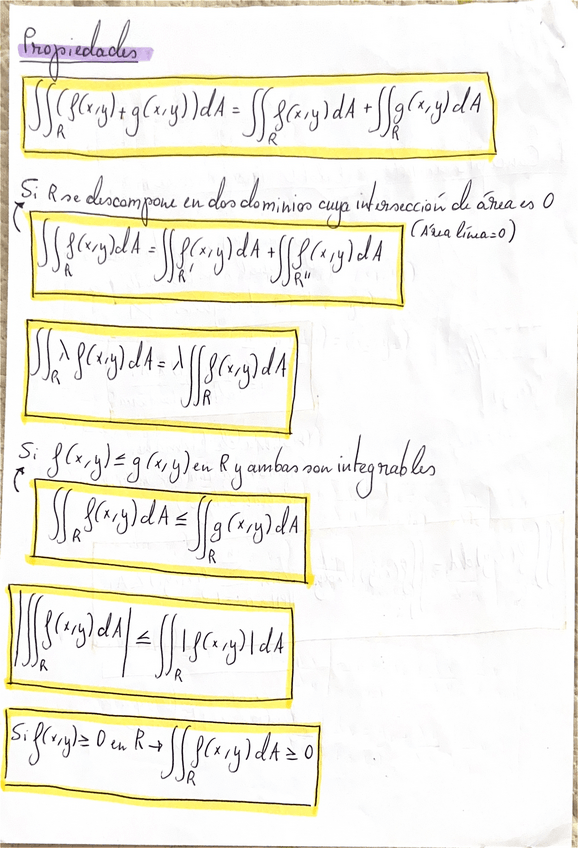 Propiedades
∬_R (f(x,y)+g(x,y))dA = ∬_R f(x,y)dA + ∬_R g(x,y)dA
Si R se descompone en dos dominios cuya intersección de área es 0
(Área línea=0)
∬_R f(x,y)dA = ∬_R' f(x,y)dA + ∬_R'' f(x,y)dA
∬_R λ f(x,y)dA = λ ∬_R f(x,y)dA
Si f(x,y) ≤ g(x,y) en R y ambas son integrables
∬_R f(x,y)dA ≤ ∬_R g(x,y)dA
|∬_R f(x,y)dA| ≤ ∬_R |f(x,y)|dA
Si f(x,y) ≥ 0 en R → ∬_R f(x,y)dA ≥ 0